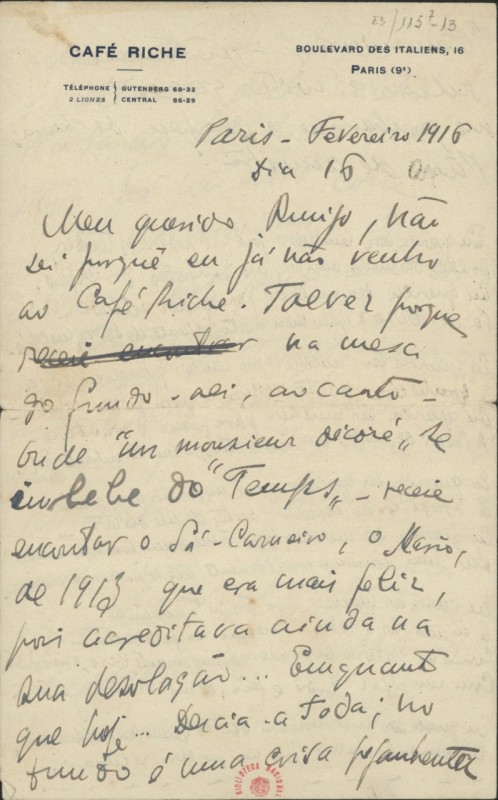 23/115⁷-13
CAFÉ RICHE
BOULEVARD DES ITALIENS, 16
PARIS (9ᵉ)
TÉLÉPHONE GUTENBERG 68-32
2 LIGNES CENTRAL 86-29
Paris - Fevereiro 1916
Dia 16
Meu querido Amigo, não
sei porquê eu já não venho
ao Café Riche. Talvez porque
receie encontrar na mesa
do fundo - ali, ao canto -
onde "un monsieur décoré" se
embebe do "Temps" - receie
encontrar o Sá-Carneiro, o Mário,
de 1913 que era mais feliz,
pois acreditava ainda na
sua desolação... Enquanto
que hoje... Descia-a toda; no
fundo é uma coisa
BIBLIOTECA NACIONAL